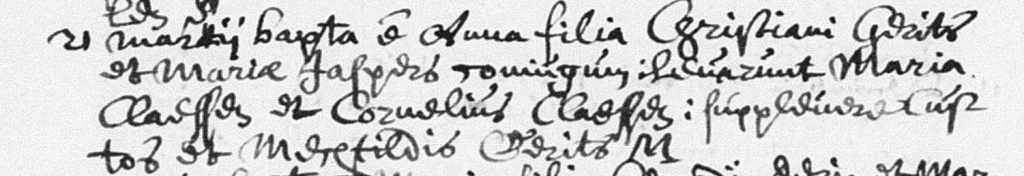 21 martij bapta ē Anna filia Christiani Gerits
et Mariæ Jaspers coniugum; levarunt Maria
Claessen et Cornelius Claessen; supplevere Cus
tos et Mechtildis Gerits